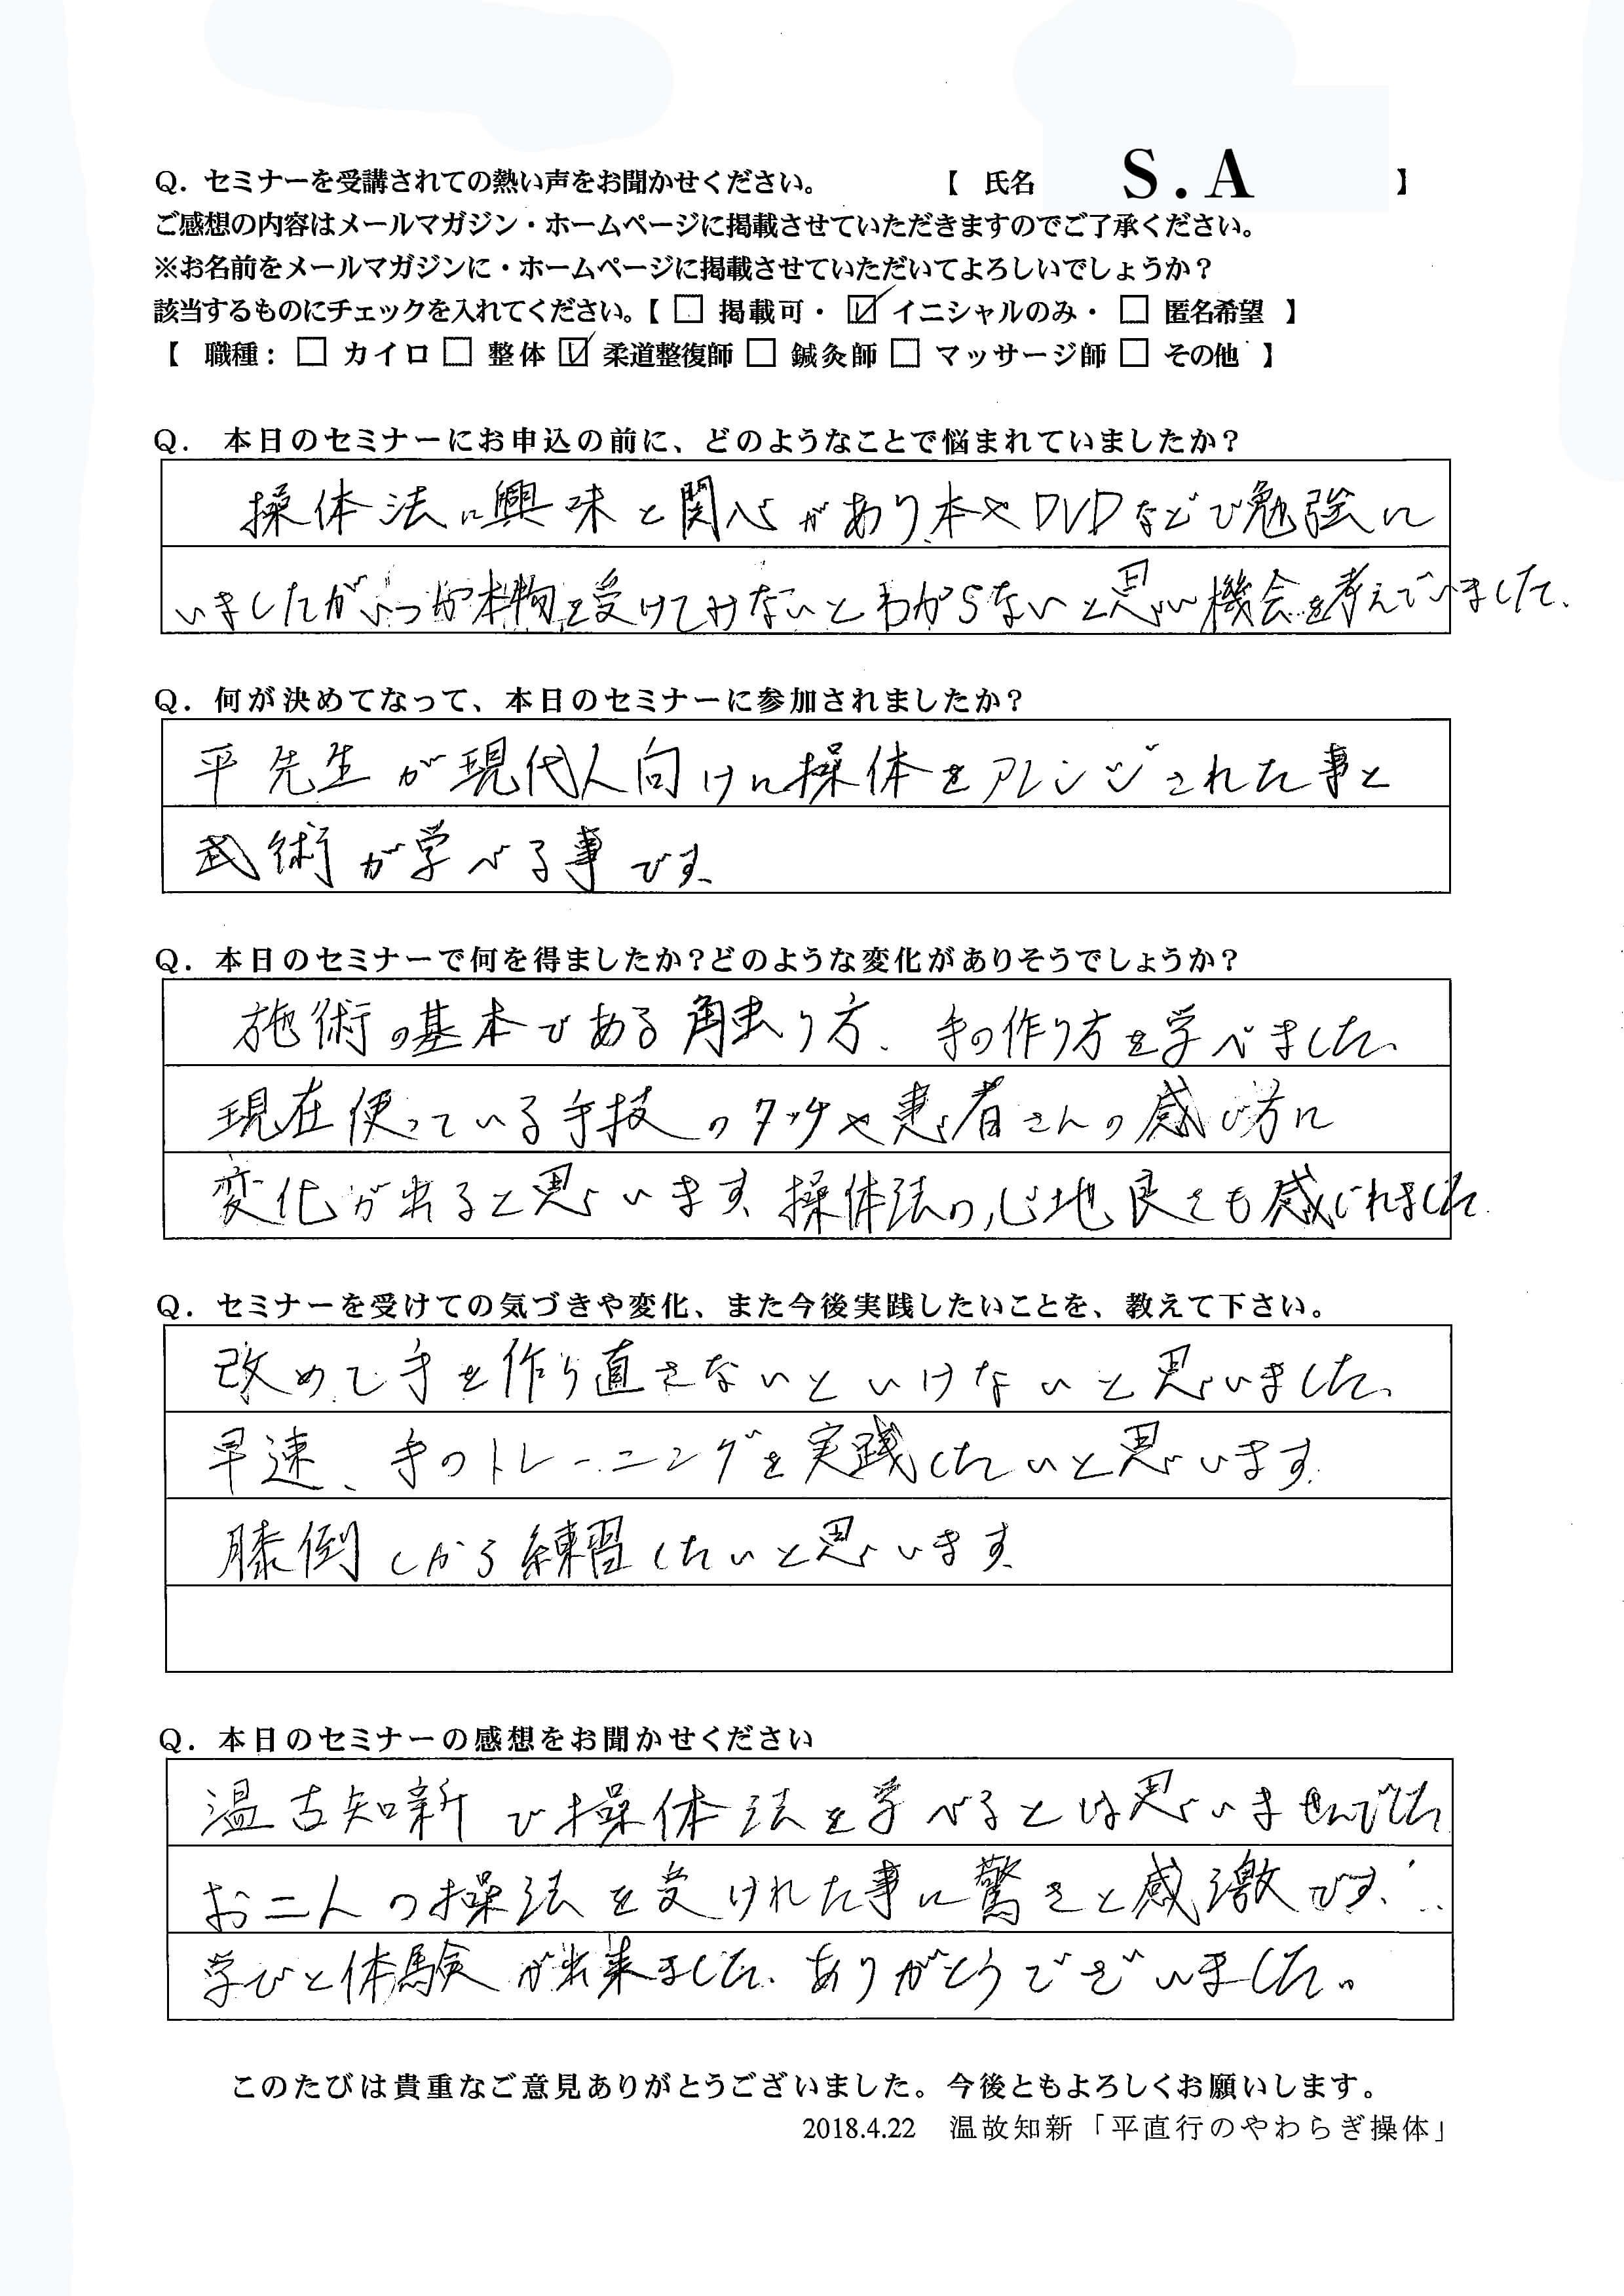 Q. セミナーを受講されての熱い声をお聞かせください。　【 氏名 S.A 】
ご感想の内容はメールマガジン・ホームページに掲載させていただきますのでご了承ください。
※お名前をメールマガジンに・ホームページに掲載させていただいてよろしいでしょうか?
該当するものにチェックを入れてください。【 □ 掲載可・ ☑ イニシャルのみ・ □ 匿名希望 】
【 職種: □ カイロ □ 整体 ☑ 柔道整復師 □ 鍼灸師 □ マッサージ師 □ その他 】
Q. 本日のセミナーにお申込の前に、どのようなことで悩まれていましたか?
操体法に興味と関心があり、本やDVDなどで勉強に
いましたがいつか本物を受けてみないとわからないと思い機会を考えていました、
Q. 何が決めてなって、本日のセミナーに参加されましたか?
平先生が現代人向けに操体をアレンジされた事と
武術が学べる事です、
Q. 本日のセミナーで何を得ましたか?どのような変化がありそうでしょうか?
施術の基本である触り方、手の作り方を学べました、
現在使っている手技のタッチや患者さんの感じ方に
変化が出ると思います、操体法の心地良さも感じれました
Q. セミナーを受けての気づきや変化、また今後実践したいことを、教えて下さい。
改めて手を作り直さないといけないと思いました、
早速、手のトレーニングを実践したいと思います、
膝倒しから練習したいと思います、
Q. 本日のセミナーの感想をお聞かせください
温古知新で操体法を学べるとは思いませんでした
お二人の操法を受けれた事に驚きと感激です、
学びと体験が出来ました、ありがとうございました。
このたびは貴重なご意見ありがとうございました。今後ともよろしくお願いします。
2018.4.22　温故知新「平直行のやわらぎ操体」